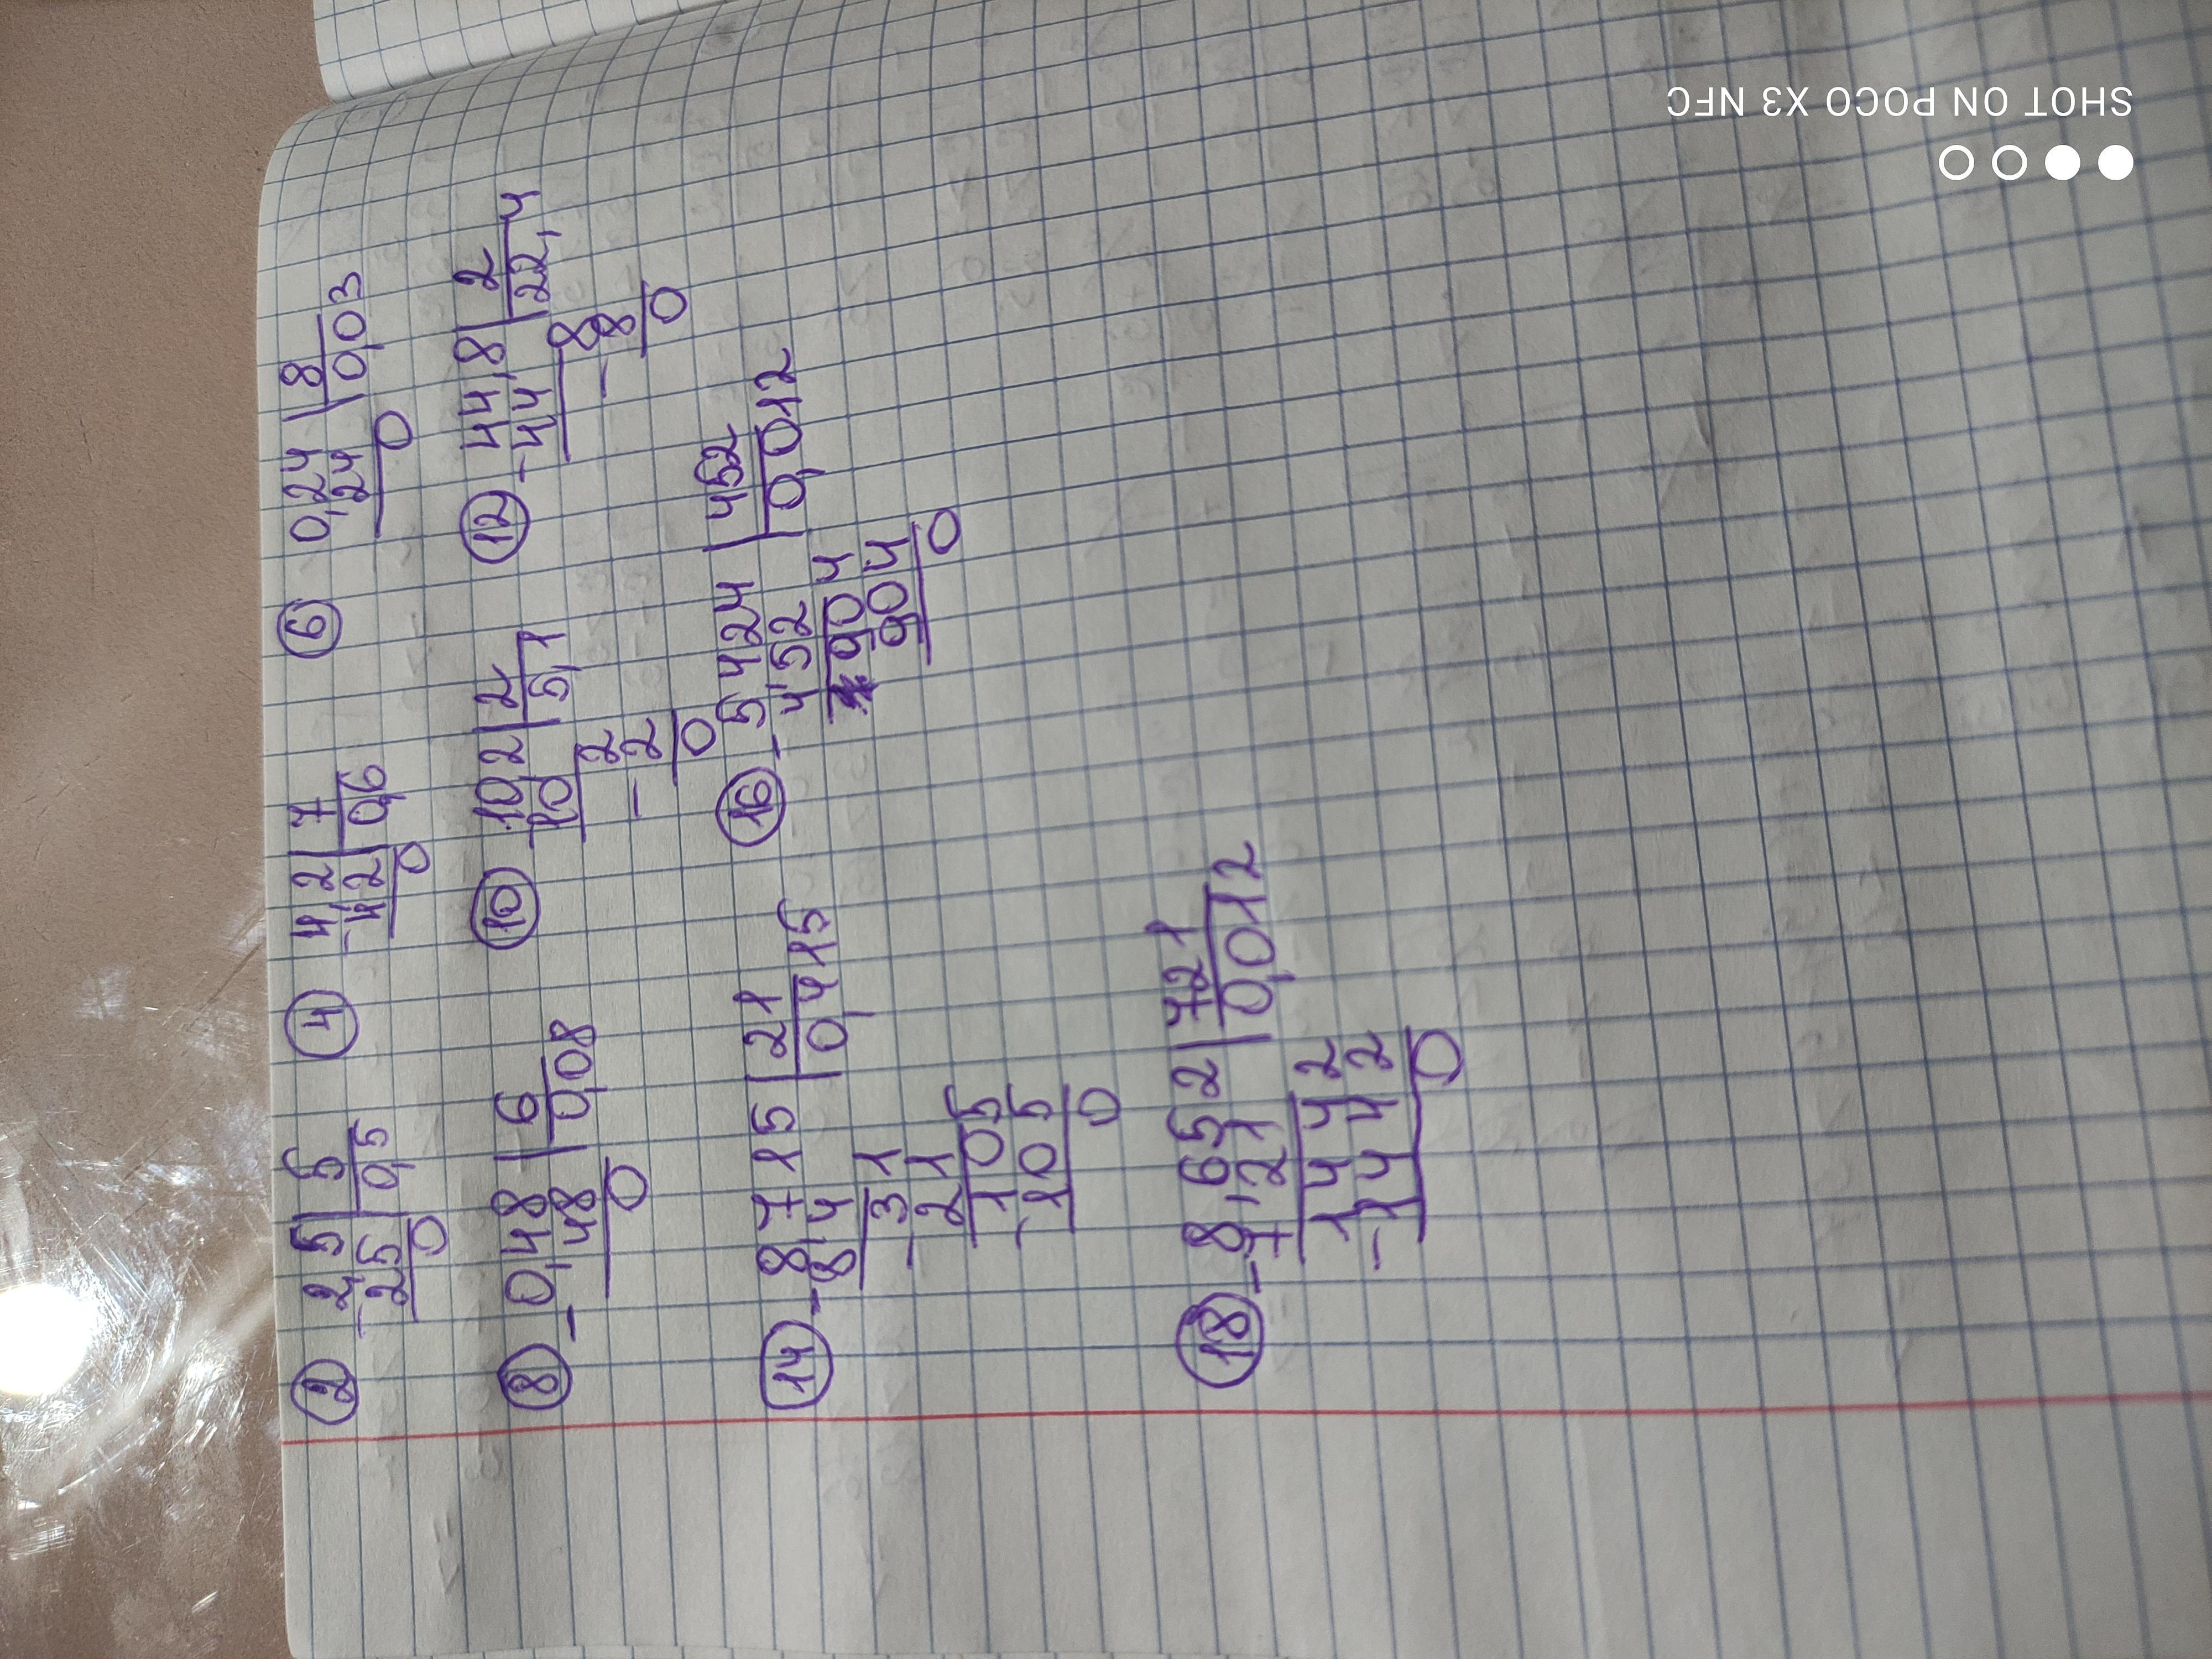 ② 2,5 | 5 ④ 4,2 | 7 ⑥ 0,24 | 8
- 25 | 0,5 - 42 | 0,6 24 | 0,03
0 0 0
⑧ - 0,48 | 6 ⑩ 10,2 | 2 ⑫ - 44,8 | 2
48 | 0,08 - 10 | 5,1 44 | 22,4
0 2 8
- 2 - 8
0 0
⑭ - 8,715 | 21 ⑯ - 5,424 | 452
8 4 | 0,415 4 52 | 0,012
- 31 904
21 904
105 0
- 105
0
⑱ - 8,652 | 721
7 21 | 0,012
1442
- 1442
0
SHOT ON POCO X3 NFC